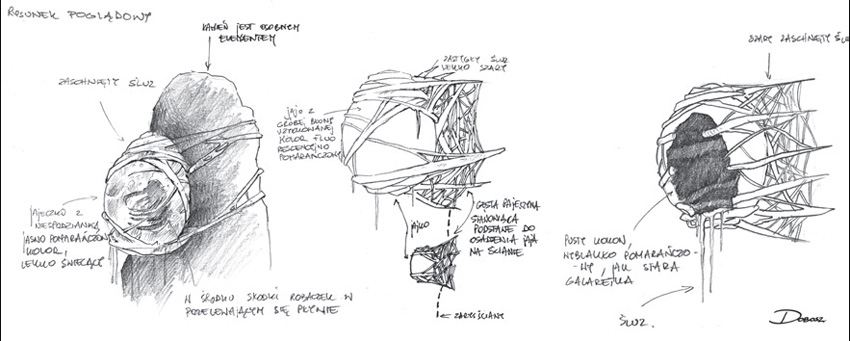 RYSUNEK POGLĄDOWY
KAMIEŃ JEST OSOBNYM
ELEMENTEM
ZASCHNIĘTY ŚLUZ
JAJECZKO Z
NIESPODZIANKĄ
JASNO POMARAŃCZOWY
KOLOR,
LEKKO ŚWIECĄCY
W ŚRODKU SŁODKI ROBACZEK W
PRZELEWAJĄCYM SIĘ PŁYNIE
ZASTYGŁY ŚLUZ
LEKKO SZARY
JAJO Z
GRUBEJ BŁONY
KOLOR FLUO
POMARAŃCZOWY
JAJKO
GĘSTA PAJĘCZYNA
STANOWIĄCA
PODSTAWĘ DO
OSADZENIA JAJA
NA ŚCIANIE
ZARYS ŚCIANY
SZARY ZASCHNIĘTY ŚLUZ
PUSTY KOKON,
WYBLAKŁO POMARAŃCZO-
-WY, JAK STARA
GALARETKA
ŚLUZ.
DOBOSZ